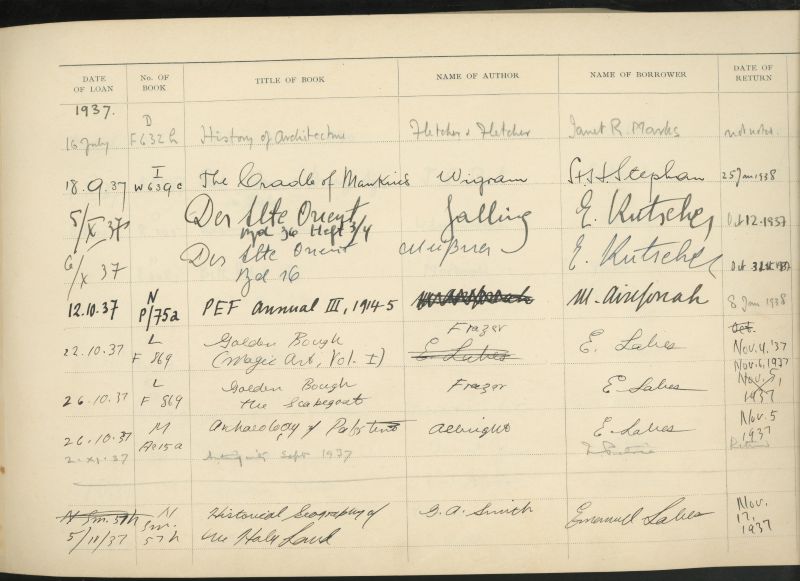 DATE OF LOAN No. OF BOOK TITLE OF BOOK NAME OF AUTHOR NAME OF BORROWER DATE OF RETURN
1937.
16 July D F632h History of Architecture Fletcher & Fletcher Janet R. Marks
18.9.37 I W639c The Cradle of Mankind Wigram Stephan 25 Jan 1938
5/X 37 Der Alte Orient E. Kutscher Oct 12-1937
Bd 36 Heft 3/4
6/X 37 Der Alte Orient E. Kutscher Oct 1937
Bd 16
12.10.37 N P/75a PEF Annual III, 1914-5 M. 8 Jan 1938
22.10.37 L F 869 Golden Bough Frazer E. Oct.
(Magic Art, Vol. I) E. Nov. 4. '37
Nov. 6, 1937
26.10.37 L F 869 Golden Bough Frazer E. Nov. 5, 1937
The Scapegoat
26.10.37 M Ac15a Archaeology of Palestine Albright E. Nov. 5 1937
2.XI.37 Antiquity Sept 1937
N Sm. 57h N Sm. 57h Historical Geography of G. A. Smith Emanuel Nov. 17, 1937
5/11/37 the Holy Land